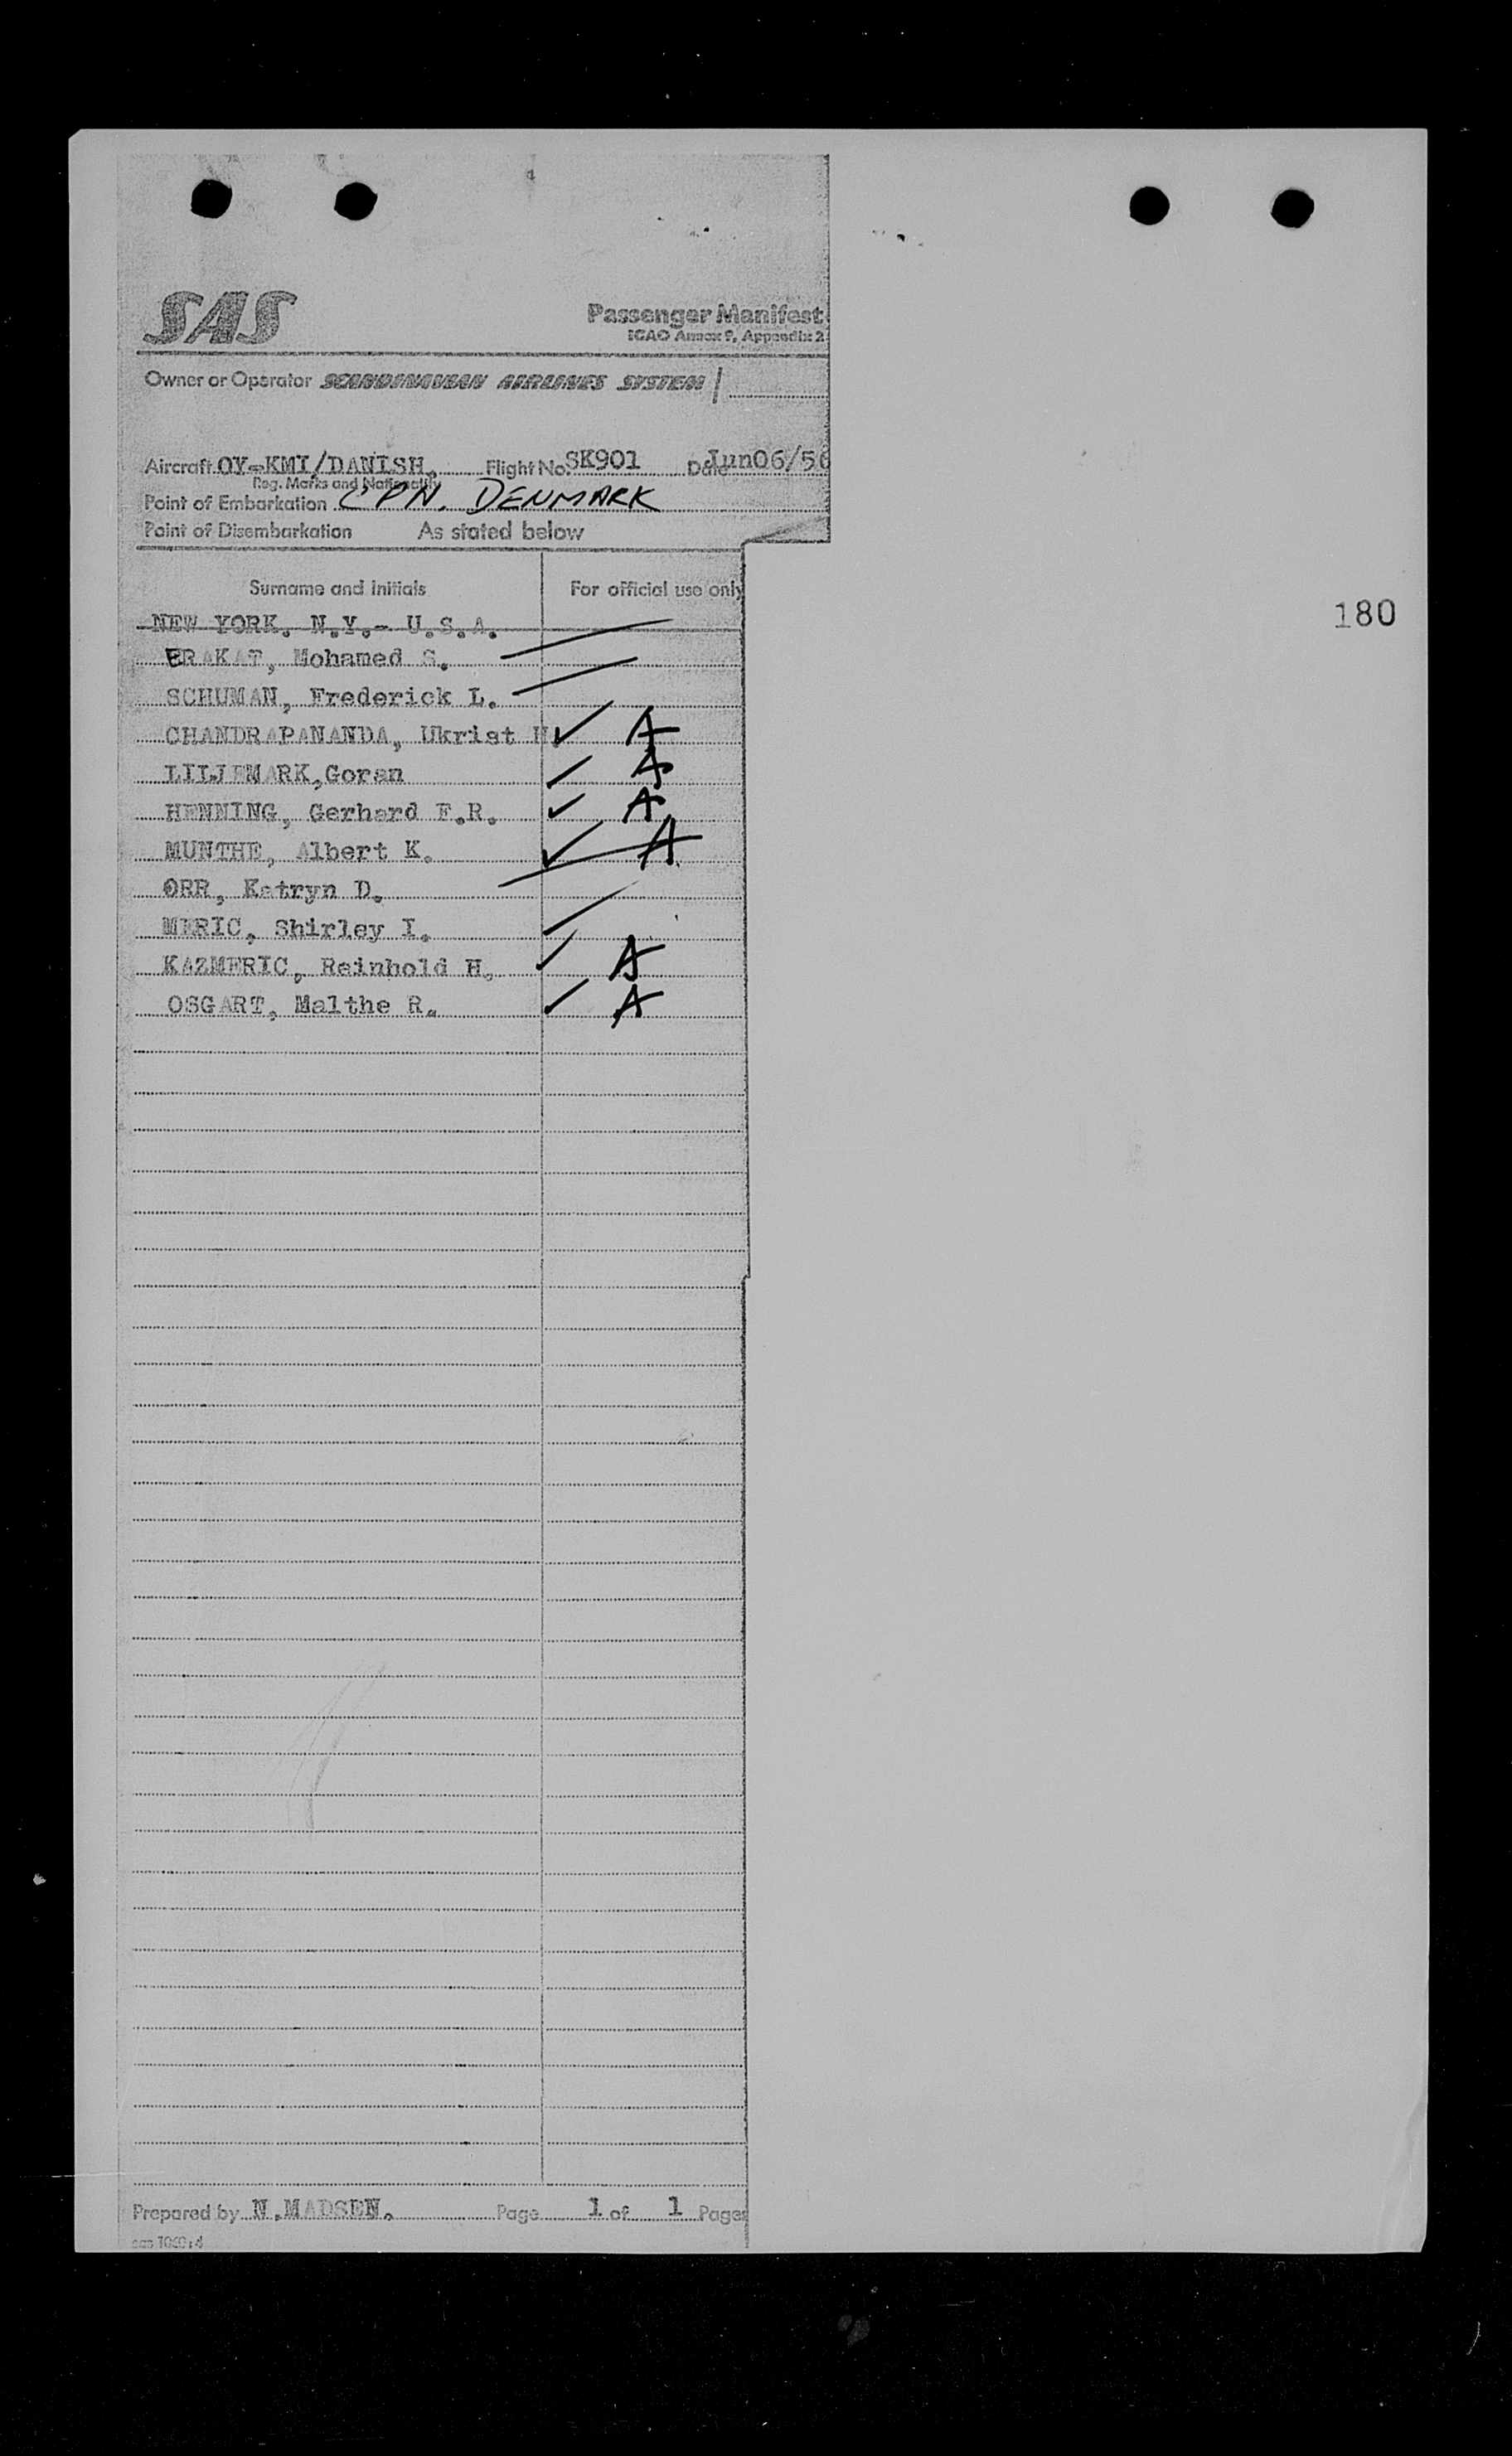 SAS
Passenger Manifest
ICAO Annex 9, Appendix 2
Owner or Operator SCANDINAVIAN AIRLINES SYSTEM /
Aircraft OY-KMI/DANISH. Flight No. SK901 Date Jun06/56
Reg. Marks and Nationality
Point of Embarkation CPN. DENMARK
Point of Disembarkation As stated below
180
Surname and initials For official use only
NEW YORK. N.Y.- U.S.A.
ERAKAT, Mohamed S.
SCHUMAN, Frederick L.
CHANDRAPANANDA, Ukrist ✓ A
LILJEMARK,Goran A
HENNING, Gerhard F.R. ✓ A
MUNTHE, Albert K. ✓ A
ORR, Katryn D.
MERIC, Shirley I.
KAZMERIC, Reinhold H. ✓ A
OSGART, Malthe R. ✓ A
Prepared by N.MADSEN. Page 1 of 1 Pages